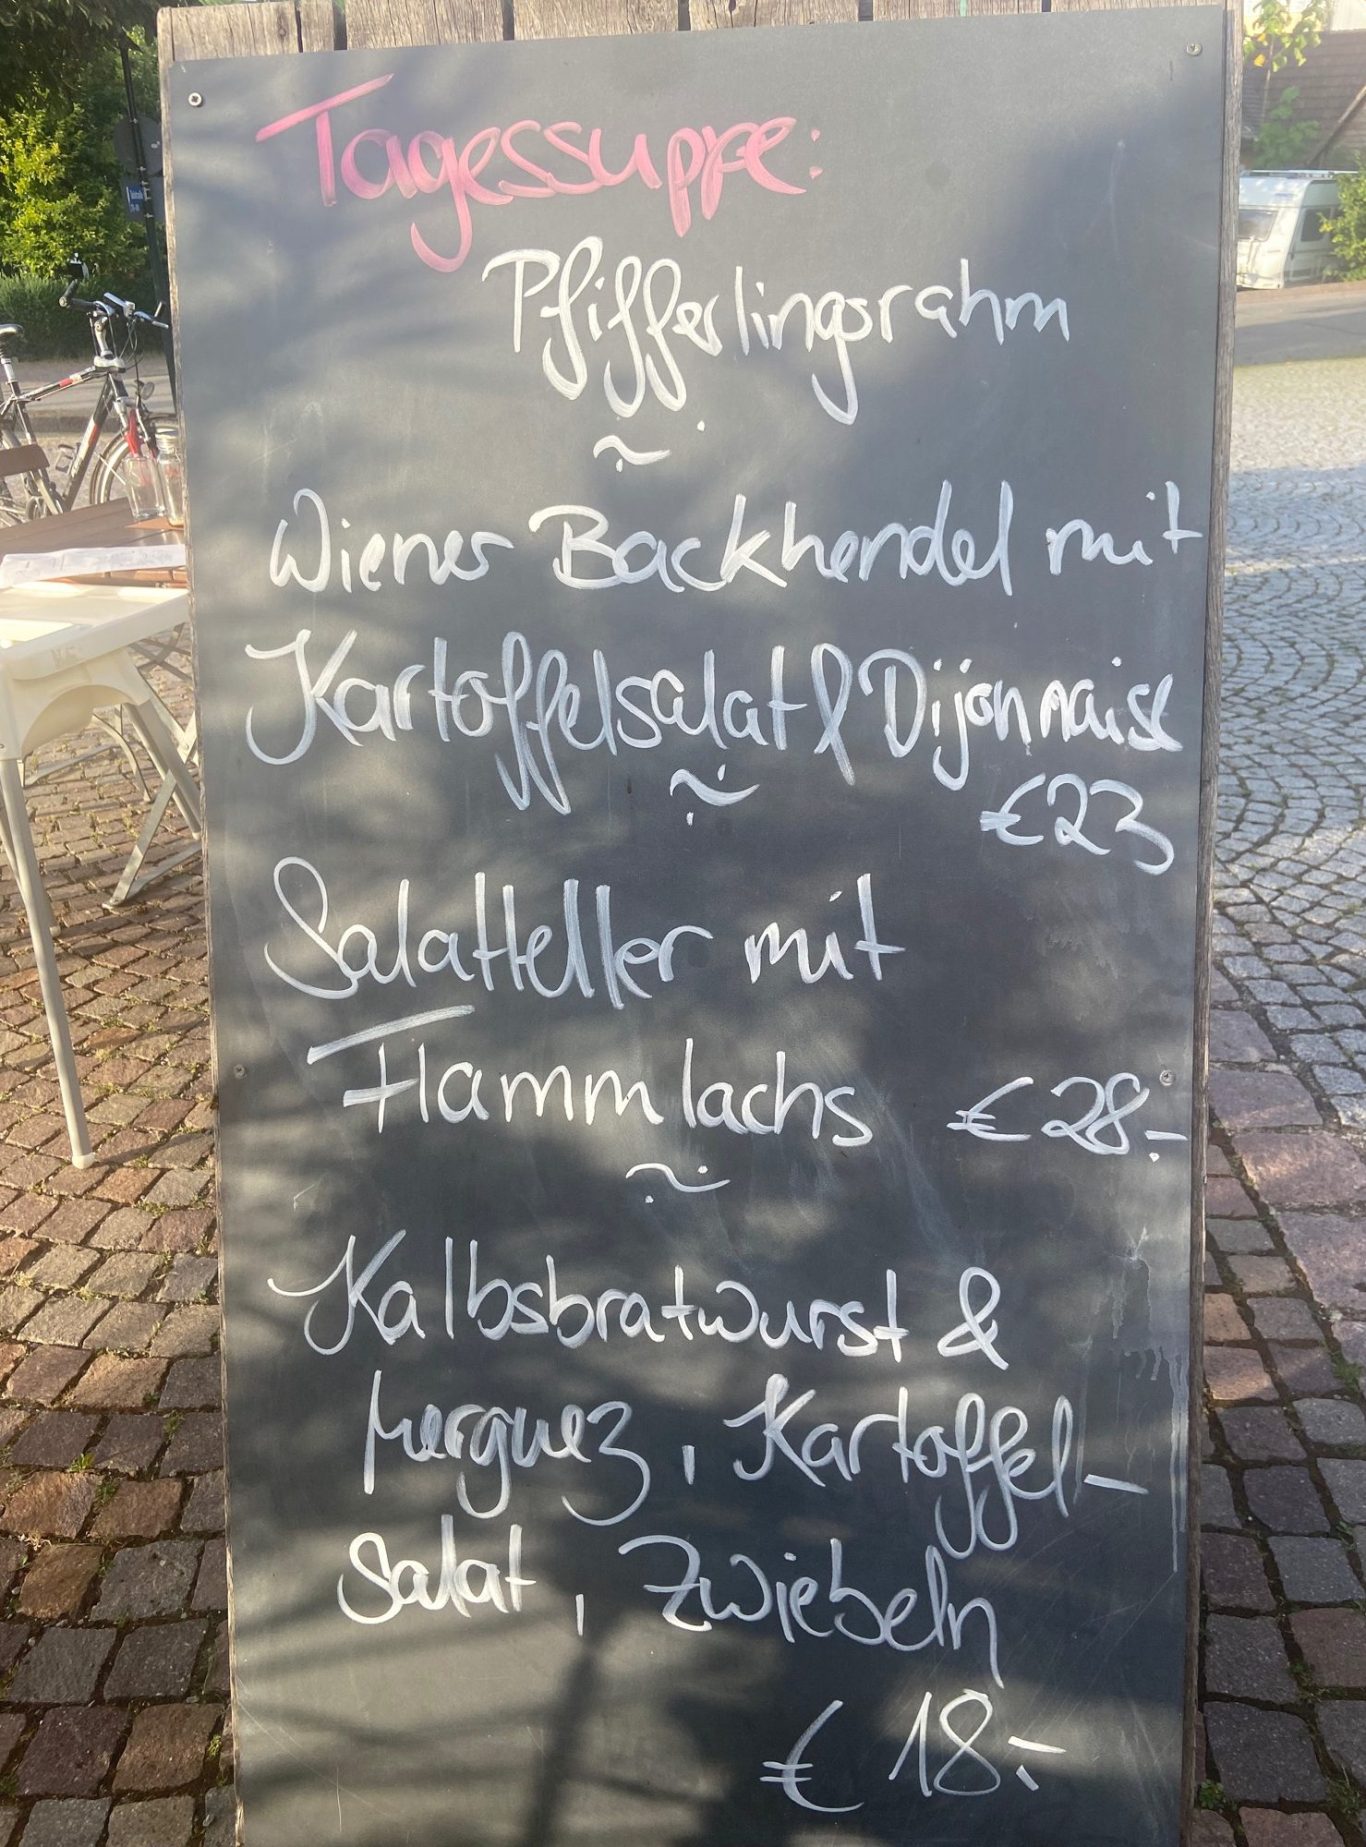 Tagessuppe:
Pfifferlingsrahm
~
Wiener Backhendel mit
Kartoffelsalat & Dijonnaise
~
€23
Salatteller mit
Flammlachs €28.-
~
Kalbsbratwurst &
Merguez, Kartoffel-
Salat, Zwiebeln
€ 18.-